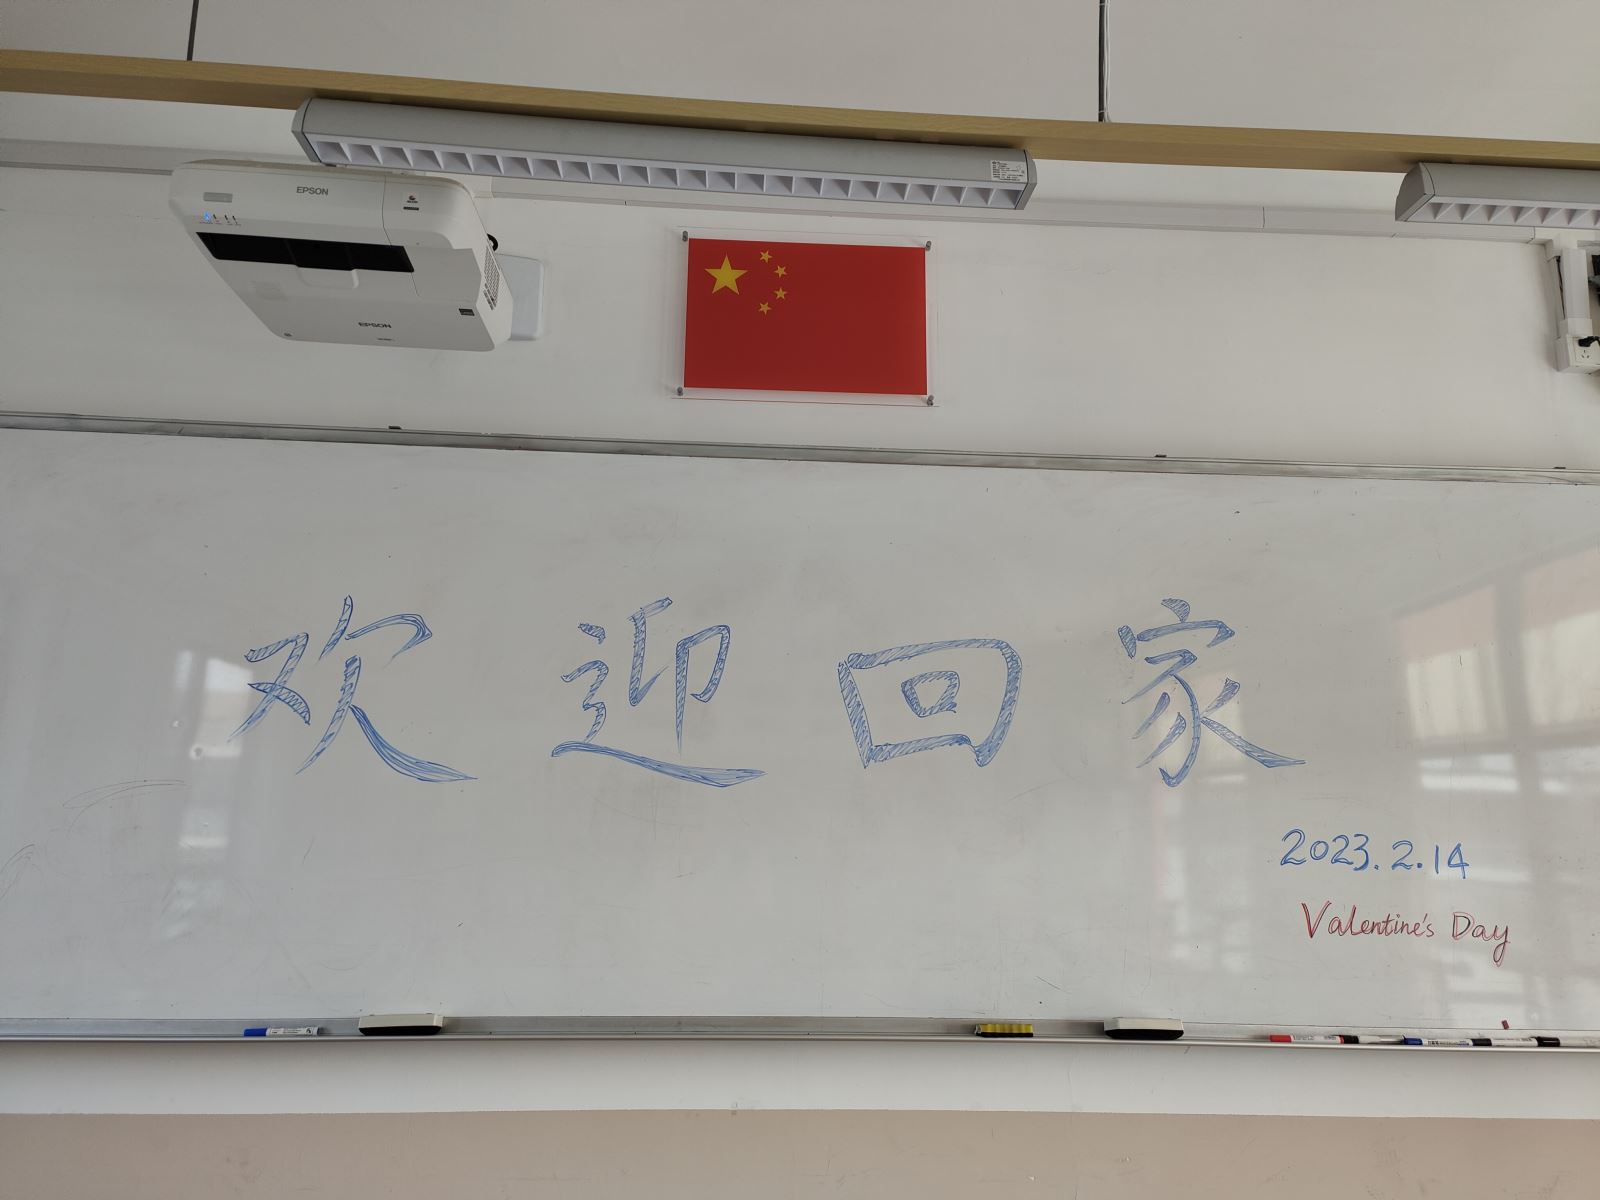 EPSON
EPSON
欢迎回家
2023.2.14
Valentine's Day